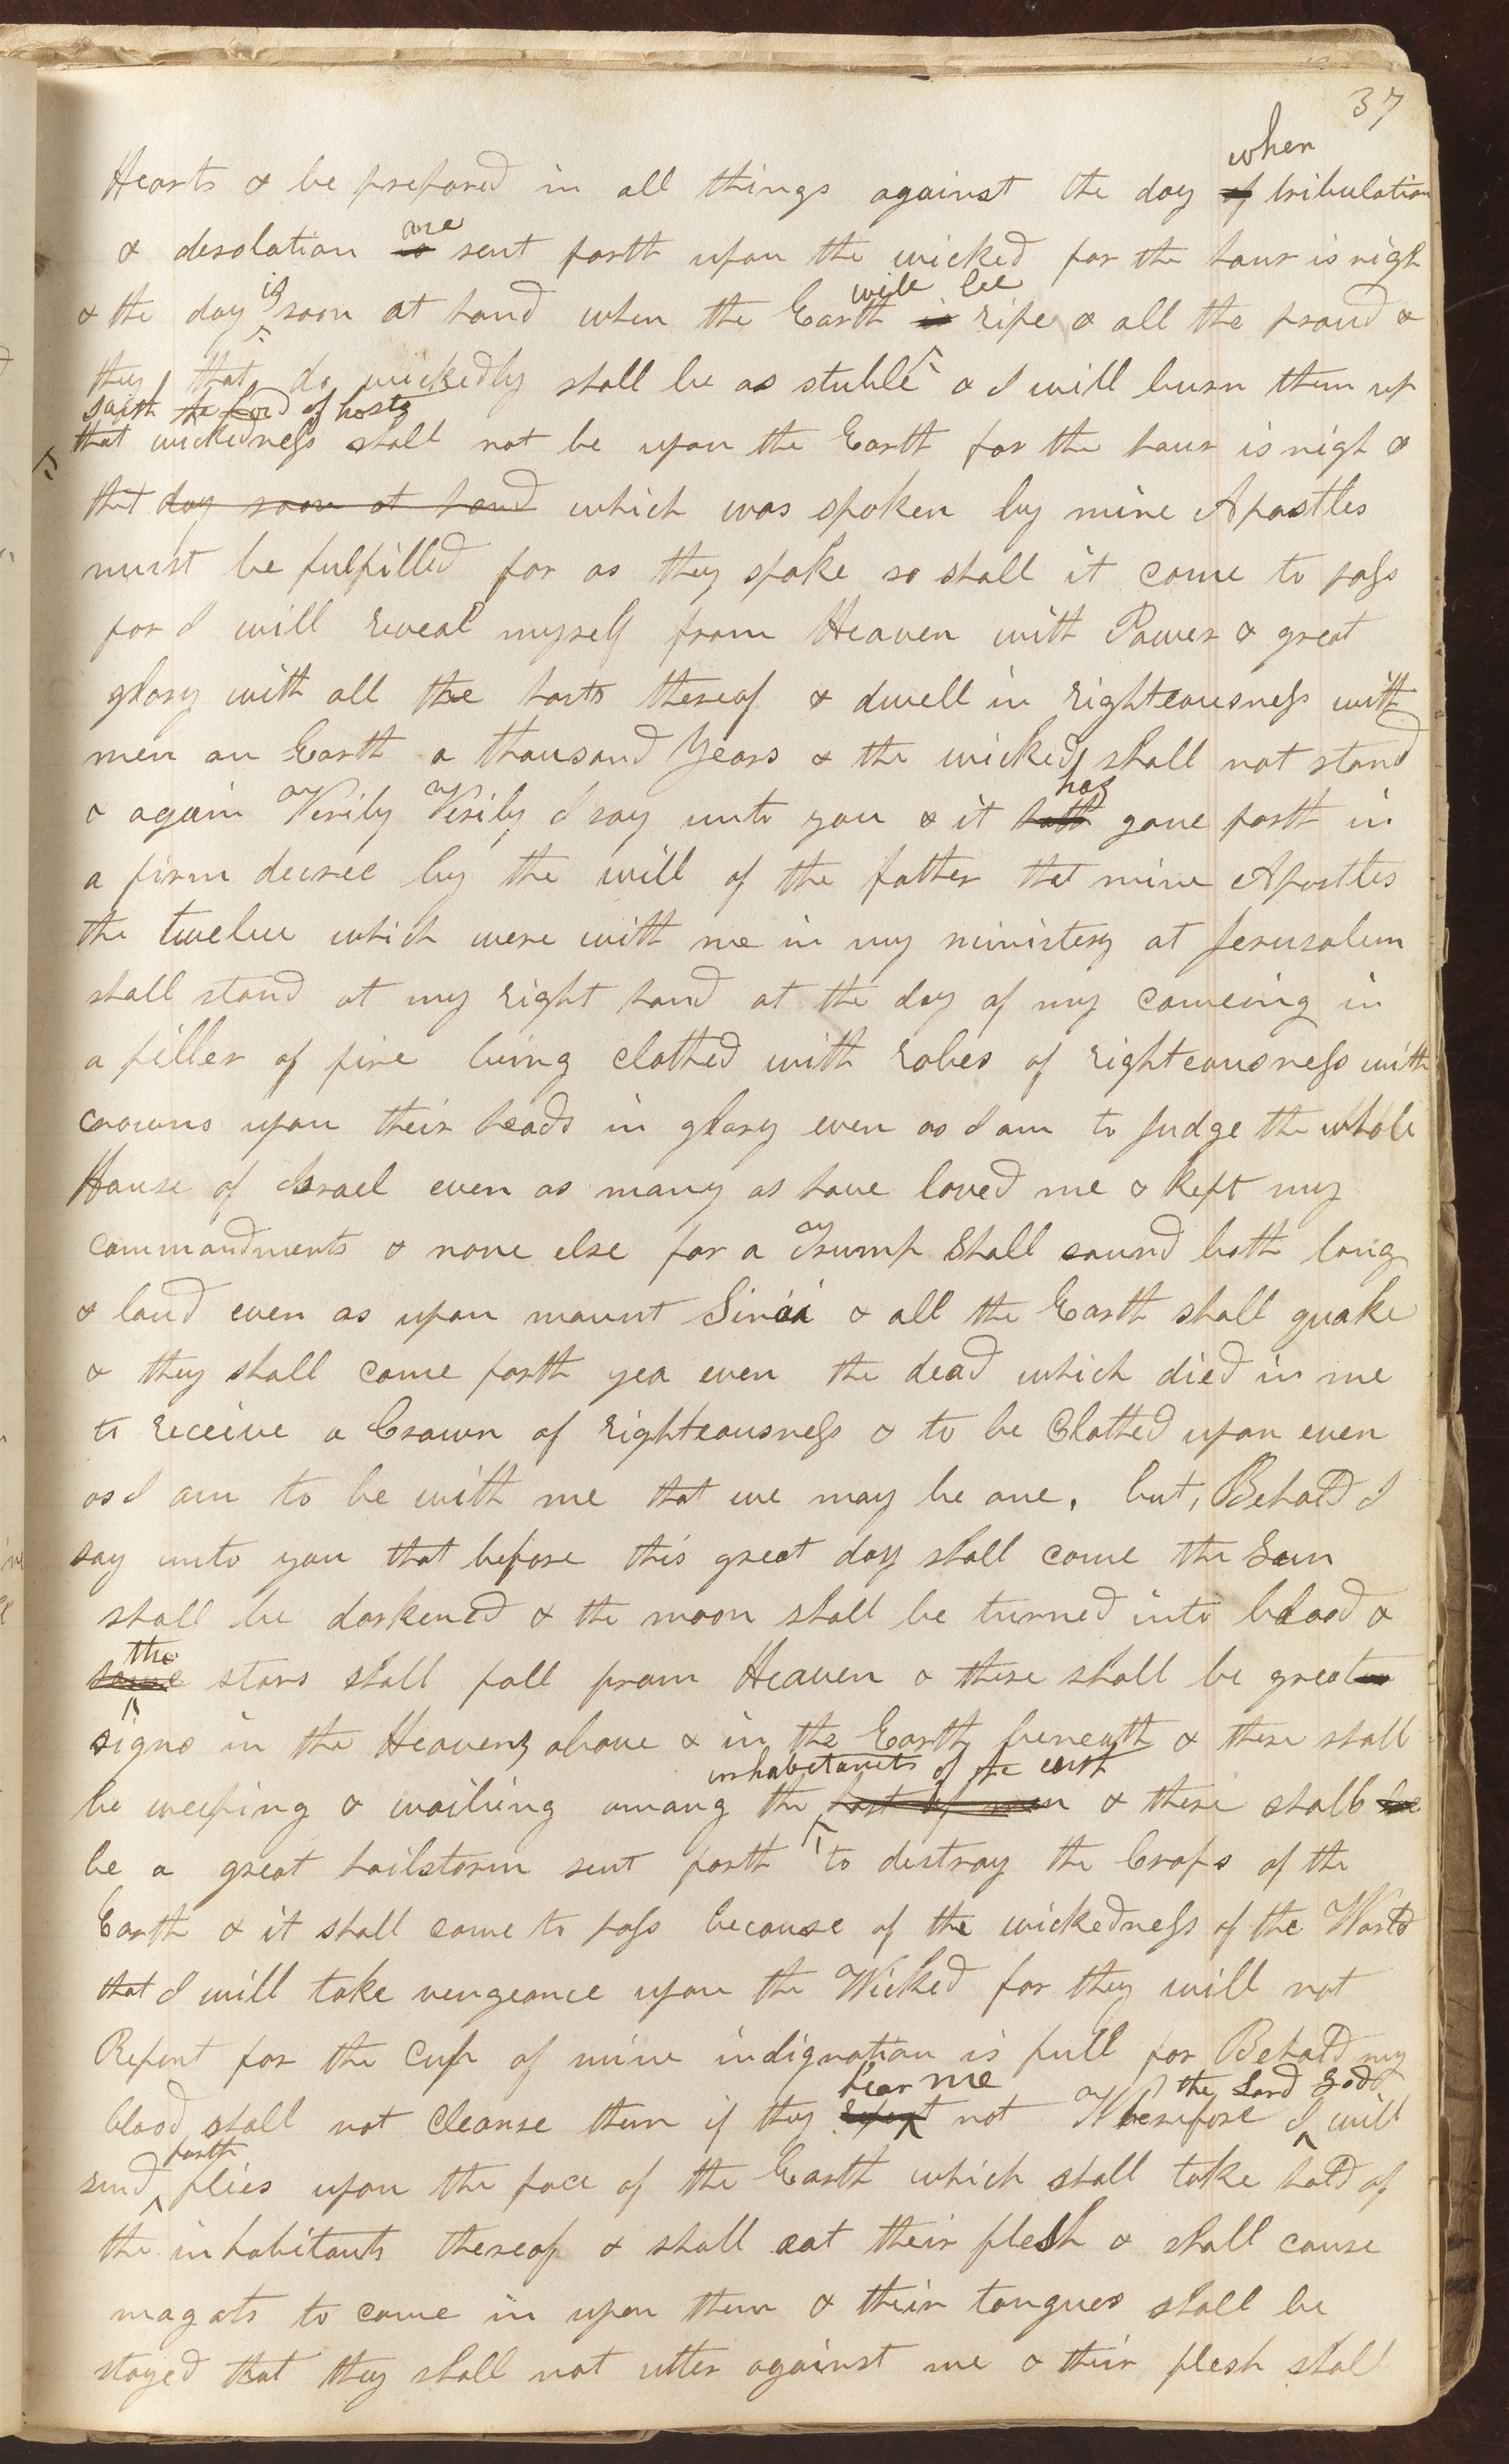 37
when
Hearts & be prepared in all things against the day of tribulation
are
& desolation is sent forth upon the wicked for the hour is nigh
is will be
& the day soon at hand when the Earth is ripe & all the proud &
they that do wickedly shall be as stuble & I will burn them up
saith the Lord of hosts
that wickedness shall not be upon the Earth for the hour is nigh &
that day soon at hand which was spoken by mine Apostles
must be fulfilled for as they spoke so shall it come to pass
for I will reveal myself from Heaven with Power & great
glory with all the hosts thereof & dwell in righteousness with
men on Earth a thousand Years & the wicked shall not stand
has
& again Verily Verily I say unto you & it hath gone forth in
a firm decree by the will of the father that mine Apostles
the twelve which were with me in my ministery at Jerusalem
shall stand at my right hand at the day of my comeing in
a piller of fire being clothed with robes of righteousness with
crowns upon their heads in glory even as I am to Judge the whole
House of Israel even as many as have loved me & kept my
commandments & none else for a Trump shall sound both long
& loud even as upon mount Sinai & all the Earth shall quake
& they shall come forth yea even the dead which died in me
to receive a Crown of righteousness & to be Clothed upon even
as I am to be with me that we may be one, but, Behold I
say unto you that before this great day shall come the Sun
shall be darkened & the moon shall be turned into blood &
the
some stars shall fall from Heaven & there shall be greater
signs in the Heavens above & in the Earth beneath & there shall
inhabitants of the earth
be weeping & wailing among the host of men & there shall be
be a great hailstorm sent forth to destroy the Crops of the
Earth & it shall come to pass because of the wickedness of the World
that I will take vengeance upon the Wicked for they will not
Repent for the cup of mine indignation is full for Behold my
hear me the Lord God
blood shall not cleanse them if they repent not Wherefore I will
forth
send flies upon the face of the Earth which shall take hold of
the inhabitants thereof & shall eat their flesh & shall cause
magats to come in upon them & their tongues shall be
stayed that they shall not utter against me & their flesh shall